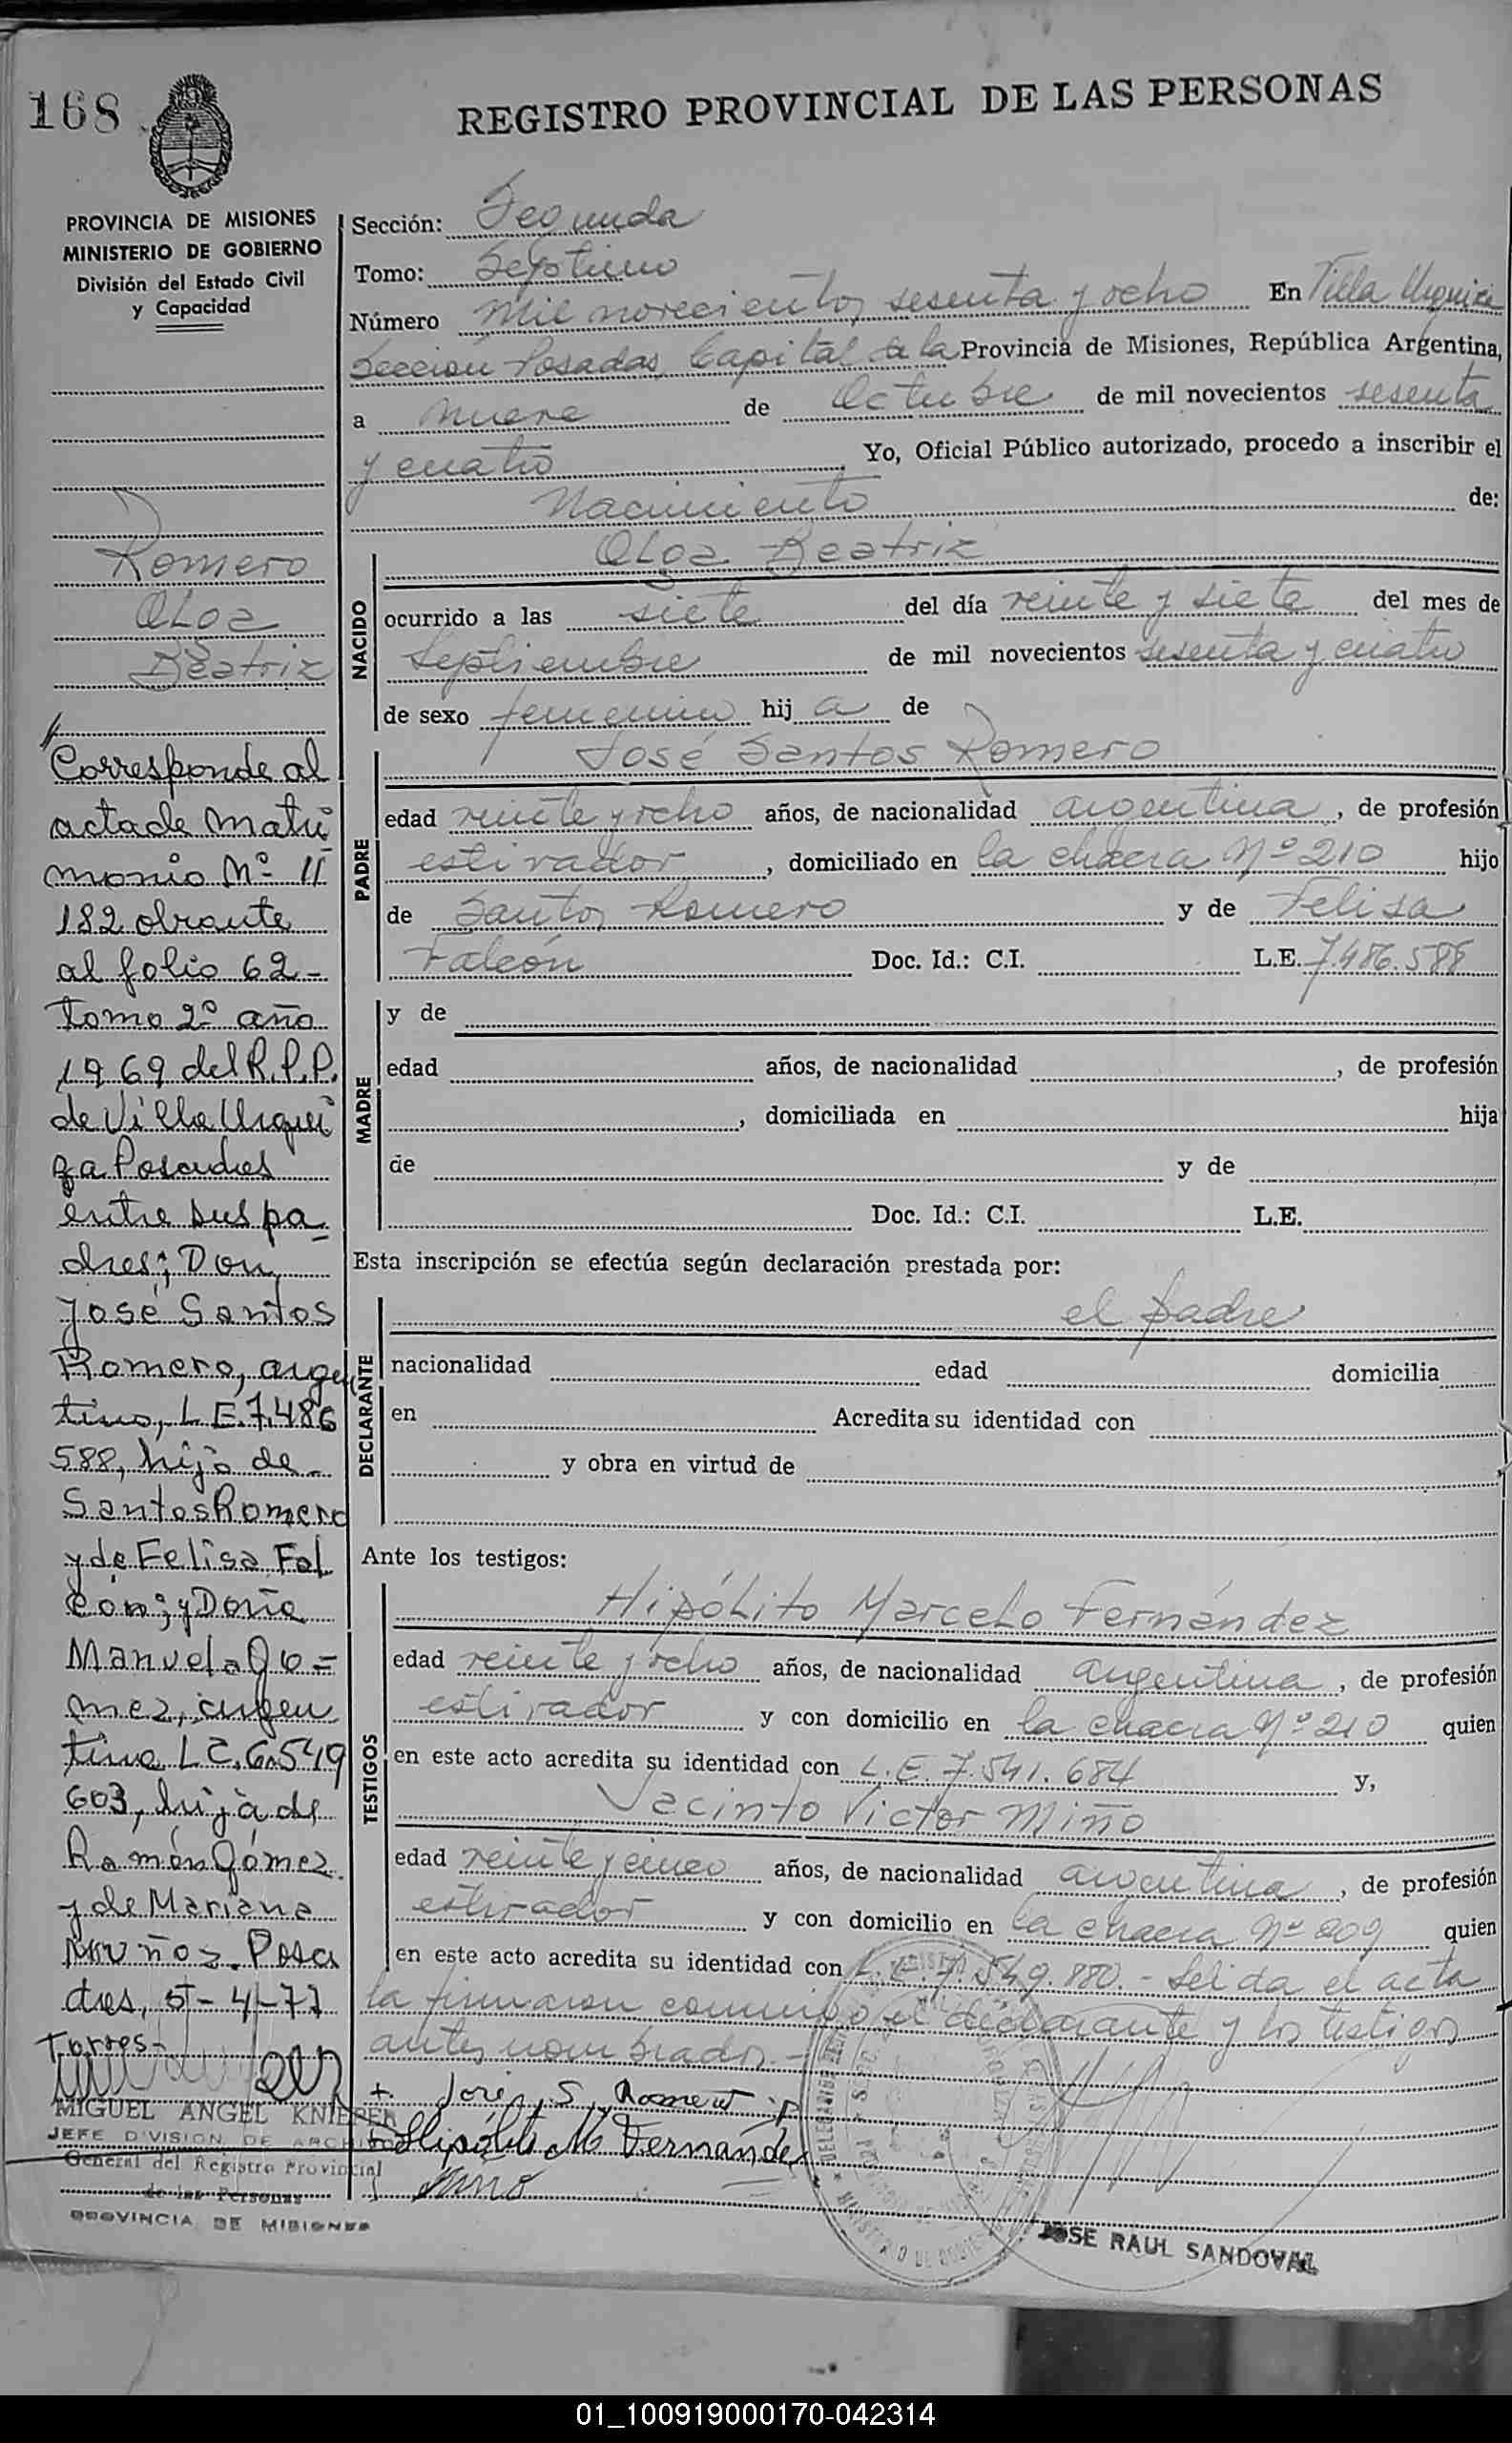 168
REGISTRO PROVINCIAL DE LAS PERSONAS
PROVINCIA DE MISIONES
MINISTERIO DE GOBIERNO
División del Estado Civil
y Capacidad
Romero
Olga
Beatriz
Corresponde al
acta de matri
monio Nº 11
182 obrante
al folio 62-
tomo 2º año
1969 del R.P.P.
de Villa Urqui
za Posadas
entre sus pa-
dres; Don
José Santos
Romero, argen
tino, L.E. 7.486
588, hijo de
Santos Romero
y de Felisa Fal
cón; y Doña
Manuela Gó=
mez, argen
tina L.C. 6.549
603, hija de
Ramón Gómez
y de Mariana
Muñoz. Posa
das, 5-4-77
Torres-
MIGUEL ANGEL KNIEPER
JEFE DIVISION DE ARCHIVO
General del Registro Provincial
de las Personas
PROVINCIA DE MISIONES
Sección: Segunda
Tomo: Septimo
Número mil novecientos sesenta y ocho En Villa Urquiza
Sección Posadas, Capital de la Provincia de Misiones, República Argentina,
a nueve de Octubre de mil novecientos sesenta
y cuatro Yo, Oficial Público autorizado, procedo a inscribir el
Nacimiento de:
NACIDO
Olga Beatriz
ocurrido a las siete del día veinte y siete del mes de
septiembre de mil novecientos sesenta y cuatro
de sexo femenino hij a de
PADRE
José Santos Romero
edad veinte y ocho años, de nacionalidad argentina, de profesión
estivador, domiciliado en la chacra Nº 210 hijo
de Santos Romero y de Felisa
Falcón Doc. Id.: C.I. L.E. 7.486.588
MADRE
y de
edad años, de nacionalidad , de profesión
, domiciliada en hija
de y de
Doc. Id.: C.I. L.E.
Esta inscripción se efectúa según declaración prestada por:
DECLARANTE
el padre
nacionalidad edad domicilia
en Acredita su identidad con
y obra en virtud de
Ante los testigos:
TESTIGOS
Hipólito Marcelo Fernández
edad veinte y ocho años, de nacionalidad argentina, de profesión
estivador y con domicilio en la chacra Nº 210 quien
en este acto acredita su identidad con L.E. 7.541.684 y,
Jacinto Victor Miño
edad veinte y cinco años, de nacionalidad argentina, de profesión
estivador y con domicilio en la chacra Nº 209 quien
en este acto acredita su identidad con L.E. 7.549.880.- Leida el acta
la firmaron conmigo el declarante y los testigos
antes nombrados.-
+ José S. Romero
Hipólito M. Fernández
Miño
JOSE RAUL SANDOVAL
01_100919000170-042314